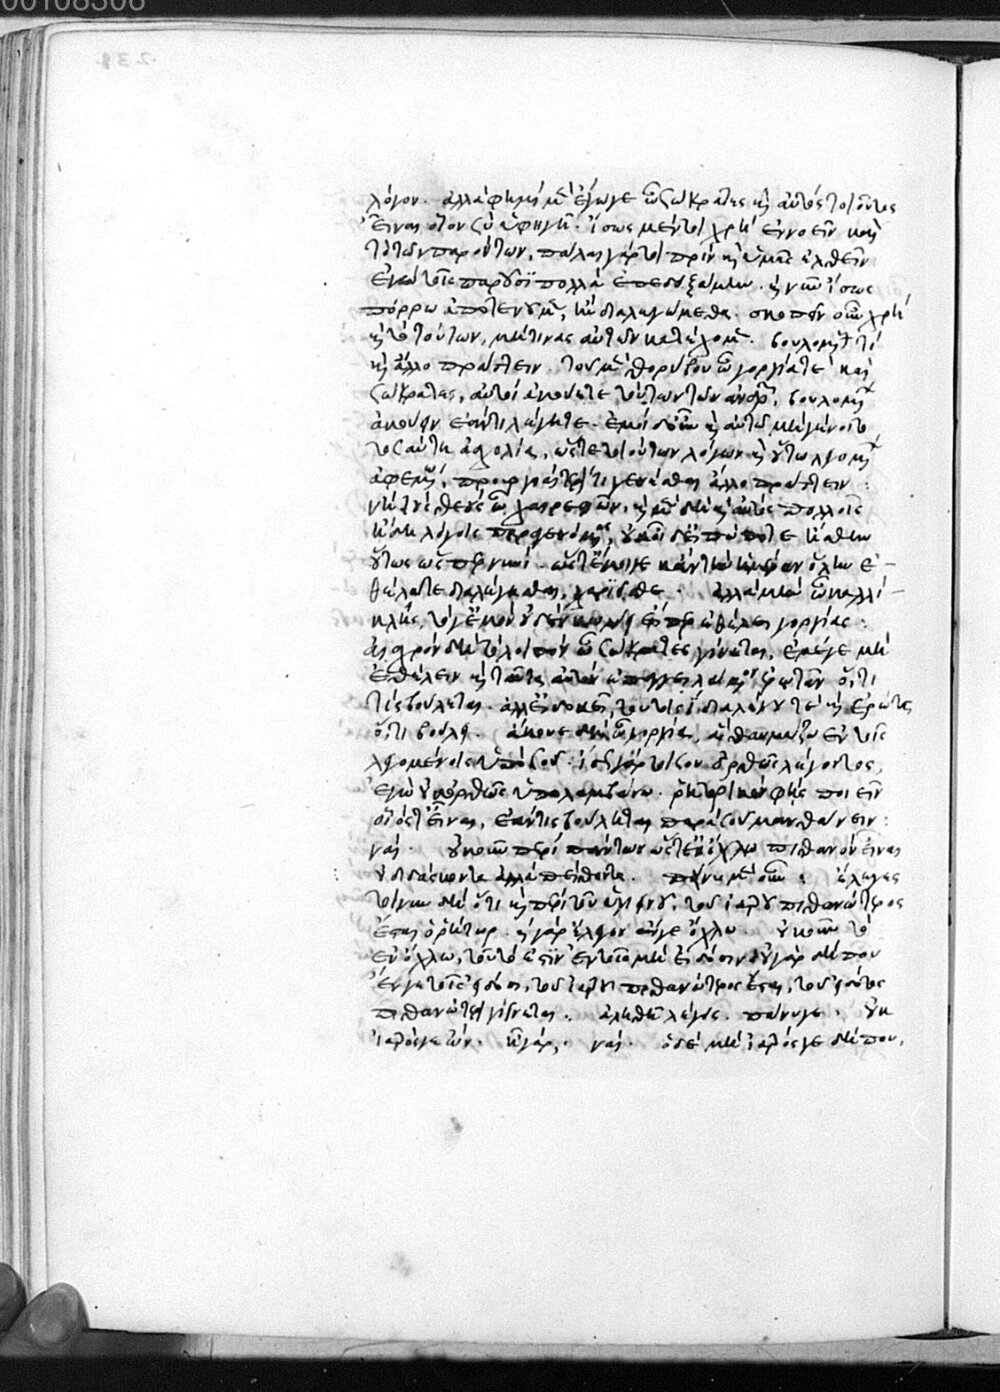 λόγον. ἀλλὰ φημὶ μὲν ἔγωγε ὦ σώκρατες καὶ αὐτὸς τοιοῦτος
εἶναι οἷον σὺ ὑφηγῆ. ἴσως μέντοι χρὴ ἐννοεῖν καὶ
τὸ τῶν παρόντων. πάλαι γάρ τοι πρὶν καὶ ὑμᾶς ἐλθεῖν
ἐγὼ τοῖς παροῦσι πολλὰ ἐπεδειξάμην. καὶ νῦν ἴσως
πόρρω ἀποτενοῦμεν, ἢν διαλεγώμεθα. σκοπεῖν οὖν χρὴ
καὶ τὸ τούτων, μή τινας αὐτῶν κατέχομεν. βουλομένους τι
καὶ ἄλλο πράττειν. τοῦ μὲν θορύβου ὦ γοργία τε καὶ
σώκρατες, αὐτοὶ ἀκούετε τούτων τῶν ἀνδρῶν, βουλομένων
ἀκούειν ἐάν τι λέγητε. ἐμοὶ δ' οὖν καὶ αὐτῶ μὴ γένοιτο
τοσαύτη ἀσχολία, ὥστε τοιούτων λόγων καὶ οὕτω λεγομένων
ἀφεμένω, προυργιαίτερόν τι γενέσθαι ἄλλο πράττειν:
νὴ τοὺς θεοὺς ὦ χαιρεφῶν, καὶ μὲν δὴ καὶ αὐτὸς πολλοῖς
ἤδη λόγοις παραγενόμενος, οὐκ οἶδ' εἰ πώποτε ἥσθην
οὕτως ὥσπερ νυνί. ὥστ' ἔμοιγε κἂν τὴν ἡμέραν ὅλην ἐ-
θέλητε διαλέγεσθαι, χαριεῖσθε. ἀλλὰ μὴν ὦ καλλί-
κλεις, τό γ' ἐμὸν οὐδὲν κωλύει εἴπερ ἐθέλει γοργίας:
αἰσχρὸν δὴ τὸ λοιπὸν ὦ σώκρατες γίνεται, ἐμέ γε μὴ
ἐθέλειν καὶ ταῦτα αὐτὸν ἐπαγγειλάμενον ἐρωτᾶν ὅ,τι
τὶς βούλεται. ἀλλ' εἰ δοκεῖ τουτοισὶ, διαλέγου τὲ καὶ ἐρώτα
ὅ,τι βούλει. ἄκουε δὴ ὦ γοργία, ἃ θαυμάζω ἐν τοῖς
λεγομένοις ὑπὸ σοῦ. ἴσως γάρ τοι σοῦ ὀρθῶς λέγοντος,
ἐγὼ οὐκ ὀρθῶς ὑπολαμβάνω. ῥητορικὸν φὴς ποιεῖν
οἷός τ' εἶναι, ἐάν τις βούληται παρὰ σοῦ μανθάνειν:
ναί. οὐκοῦν περὶ πάντων ὥστ' ἐν ὄχλω πιθανὸν εἶναι
οὐ διδάσκοντα ἀλλὰ πείθοντα. πάνυ μὲν οὖν. ἔλεγες
τοίνυν δὴ ὅτι καὶ περὶ τοῦ ὑγιεινοῦ, τοῦ ἰατροῦ πιθανώτερος
ἔσται ὁ ῥήτωρ. καὶ γὰρ ἔλεγον ἔν γε ὄχλω. οὐκοῦν τὸ
ἐν ὄχλω, τοῦτό ἐστιν ἐν τοῖς μὴ εἰδόσιν. οὐ γὰρ δήπου
ἔν γε τοῖς εἰδόσι, τοῦ ἰατροῦ πιθανώτερος ἔσται, τοῦ εἰδότος
πιθανώτερος γίνεται. ἀληθῆ λέγεις. πάνυ γε. οὐκ
ἰατρός γε ὤν. ἦ γάρ;. ναί. ὁ δὲ μὴ ἰατρός γε δήπου,